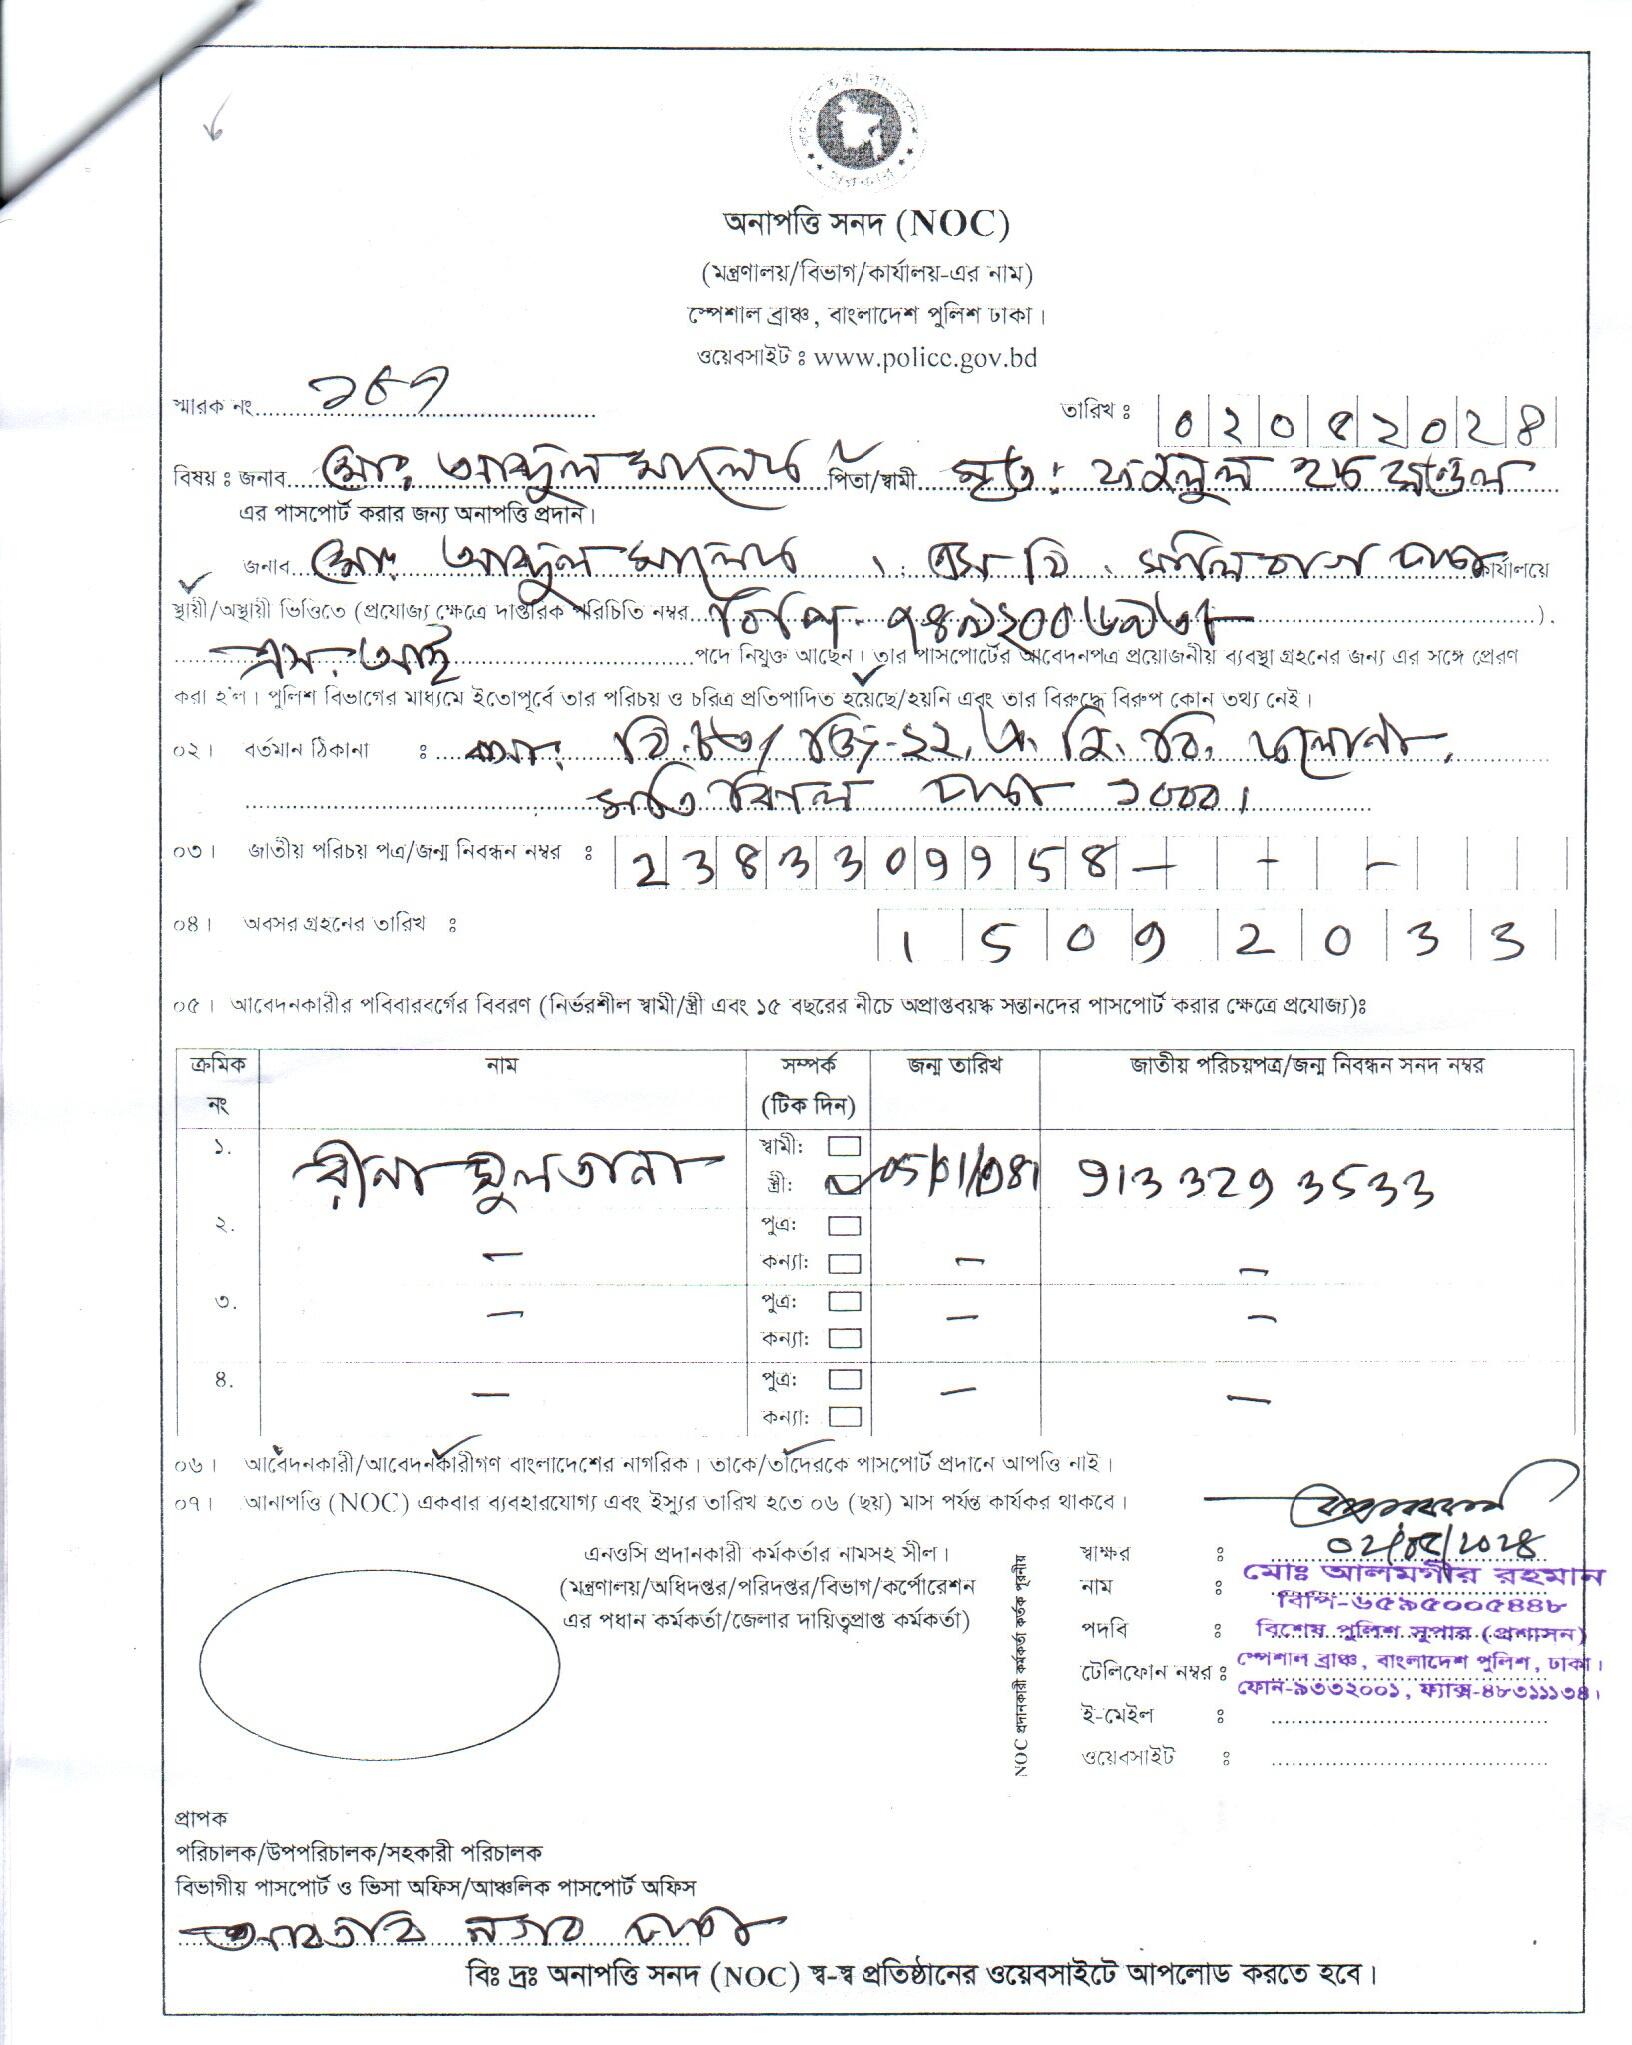 অনাপত্তি সনদ (NOC)
(মন্ত্রণালয়/বিভাগ/কার্যালয়-এর নাম)
স্পেশাল ব্রাঞ্চ, বাংলাদেশ পুলিশ ঢাকা।
ওয়েবসাইট ঃ www.policc.gov.bd
স্মারক নং
তারিখ ঃ ০২০৫২০২৪
বিষয় ঃ জনাব মোঃ আব্দুল মালেক পিতা/স্বামী মৃত: ফজলুল হক মন্ডল
এর পাসপোর্ট করার জন্য অনাপত্তি প্রদান।
জনাব মোঃ আব্দুল মালেক । এস বি, মালিবাগ ঢাকা কার্যালয়ে
স্থায়ী/অস্থায়ী ভিত্তিতে (প্রযোজ্য ক্ষেত্রে দাপ্তরিক পরিচিতি নম্বর বিপি- ).
এস. আই পদে নিযুক্ত আছেন। তার পাসপোর্টের আবেদনপত্র প্রয়োজনীয় ব্যবস্থা গ্রহনের জন্য এর সঙ্গে প্রেরণ
করা হ'ল। পুলিশ বিভাগের মাধ্যমে ইতোপূর্বে তার পরিচয় ও চরিত্র প্রতিপাদিত হয়েছে/হয়নি এবং তার বিরুদ্ধে বিরুপ কোন তথ্য নেই।
০২। বর্তমান ঠিকানা ঃ বাসা: জি-২২, এ. জি. বি, কলোনী,
মতিঝিল ঢাকা ১০০০।
০৩। জাতীয় পরিচয় পত্র/জন্ম নিবন্ধন নম্বর ঃ 2383309958 - - -
০৪। অবসর গ্রহনের তারিখ ঃ 15092033
০৫। আবেদনকারীর পবিবারবর্গের বিবরণ (নির্ভরশীল স্বামী/স্ত্রী এবং ১৫ বছরের নীচে অপ্রাপ্তবয়স্ক সন্তানদের পাসপোর্ট করার ক্ষেত্রে প্রযোজ্য)ঃ
ক্রমিক নং নাম সম্পর্ক (টিক দিন) জন্ম তারিখ জাতীয় পরিচয়পত্র/জন্ম নিবন্ধন সনদ নম্বর
১. রীনা সুলতানা স্বামী: স্ত্রী: 05/01/1981 9133293533
২. - পুত্র: কন্যা: - -
৩. - পুত্র: কন্যা: - -
৪. - পুত্র: কন্যা: - -
০৬। আবেদনকারী/আবেদনকারীগণ বাংলাদেশের নাগরিক। তাকে/তাঁদেরকে পাসপোর্ট প্রদানে আপত্তি নাই।
০৭। আনাপত্তি (NOC) একবার ব্যবহারযোগ্য এবং ইস্যুর তারিখ হতে ০৬ (ছয়) মাস পর্যন্ত কার্যকর থাকবে।
এনওসি প্রদানকারী কর্মকর্তার নামসহ সীল।
(মন্ত্রণালয়/অধিদপ্তর/পরিদপ্তর/বিভাগ/কর্পোরেশন
এর পধান কর্মকর্তা/জেলার দায়িত্বপ্রাপ্ত কর্মকর্তা)
NOC প্রদানকারী কর্মকর্তা কর্তৃক পূরনীয়
স্বাক্ষর ঃ ০২/০৫/২০২৪
নাম ঃ মোঃ আলমগীর রহমান
বিপি-৬৫৯৫০০৫৪৪৮
পদবি ঃ বিশেষ পুলিশ সুপার (প্রশাসন)
টেলিফোন নম্বর ঃ স্পেশাল ব্রাঞ্চ, বাংলাদেশ পুলিশ, ঢাকা।
ফোন-৯৩৩২০০১, ফ্যাক্স-৪৮৩১১১৩৪।
ই-মেইল ঃ
ওয়েবসাইট ঃ
প্রাপক
পরিচালক/উপপরিচালক/সহকারী পরিচালক
বিভাগীয় পাসপোর্ট ও ভিসা অফিস/আঞ্চলিক পাসপোর্ট অফিস
আফতাব নগর ঢাকা
বিঃ দ্রঃ অনাপত্তি সনদ (NOC) স্ব-স্ব প্রতিষ্ঠানের ওয়েবসাইটে আপলোড করতে হবে।